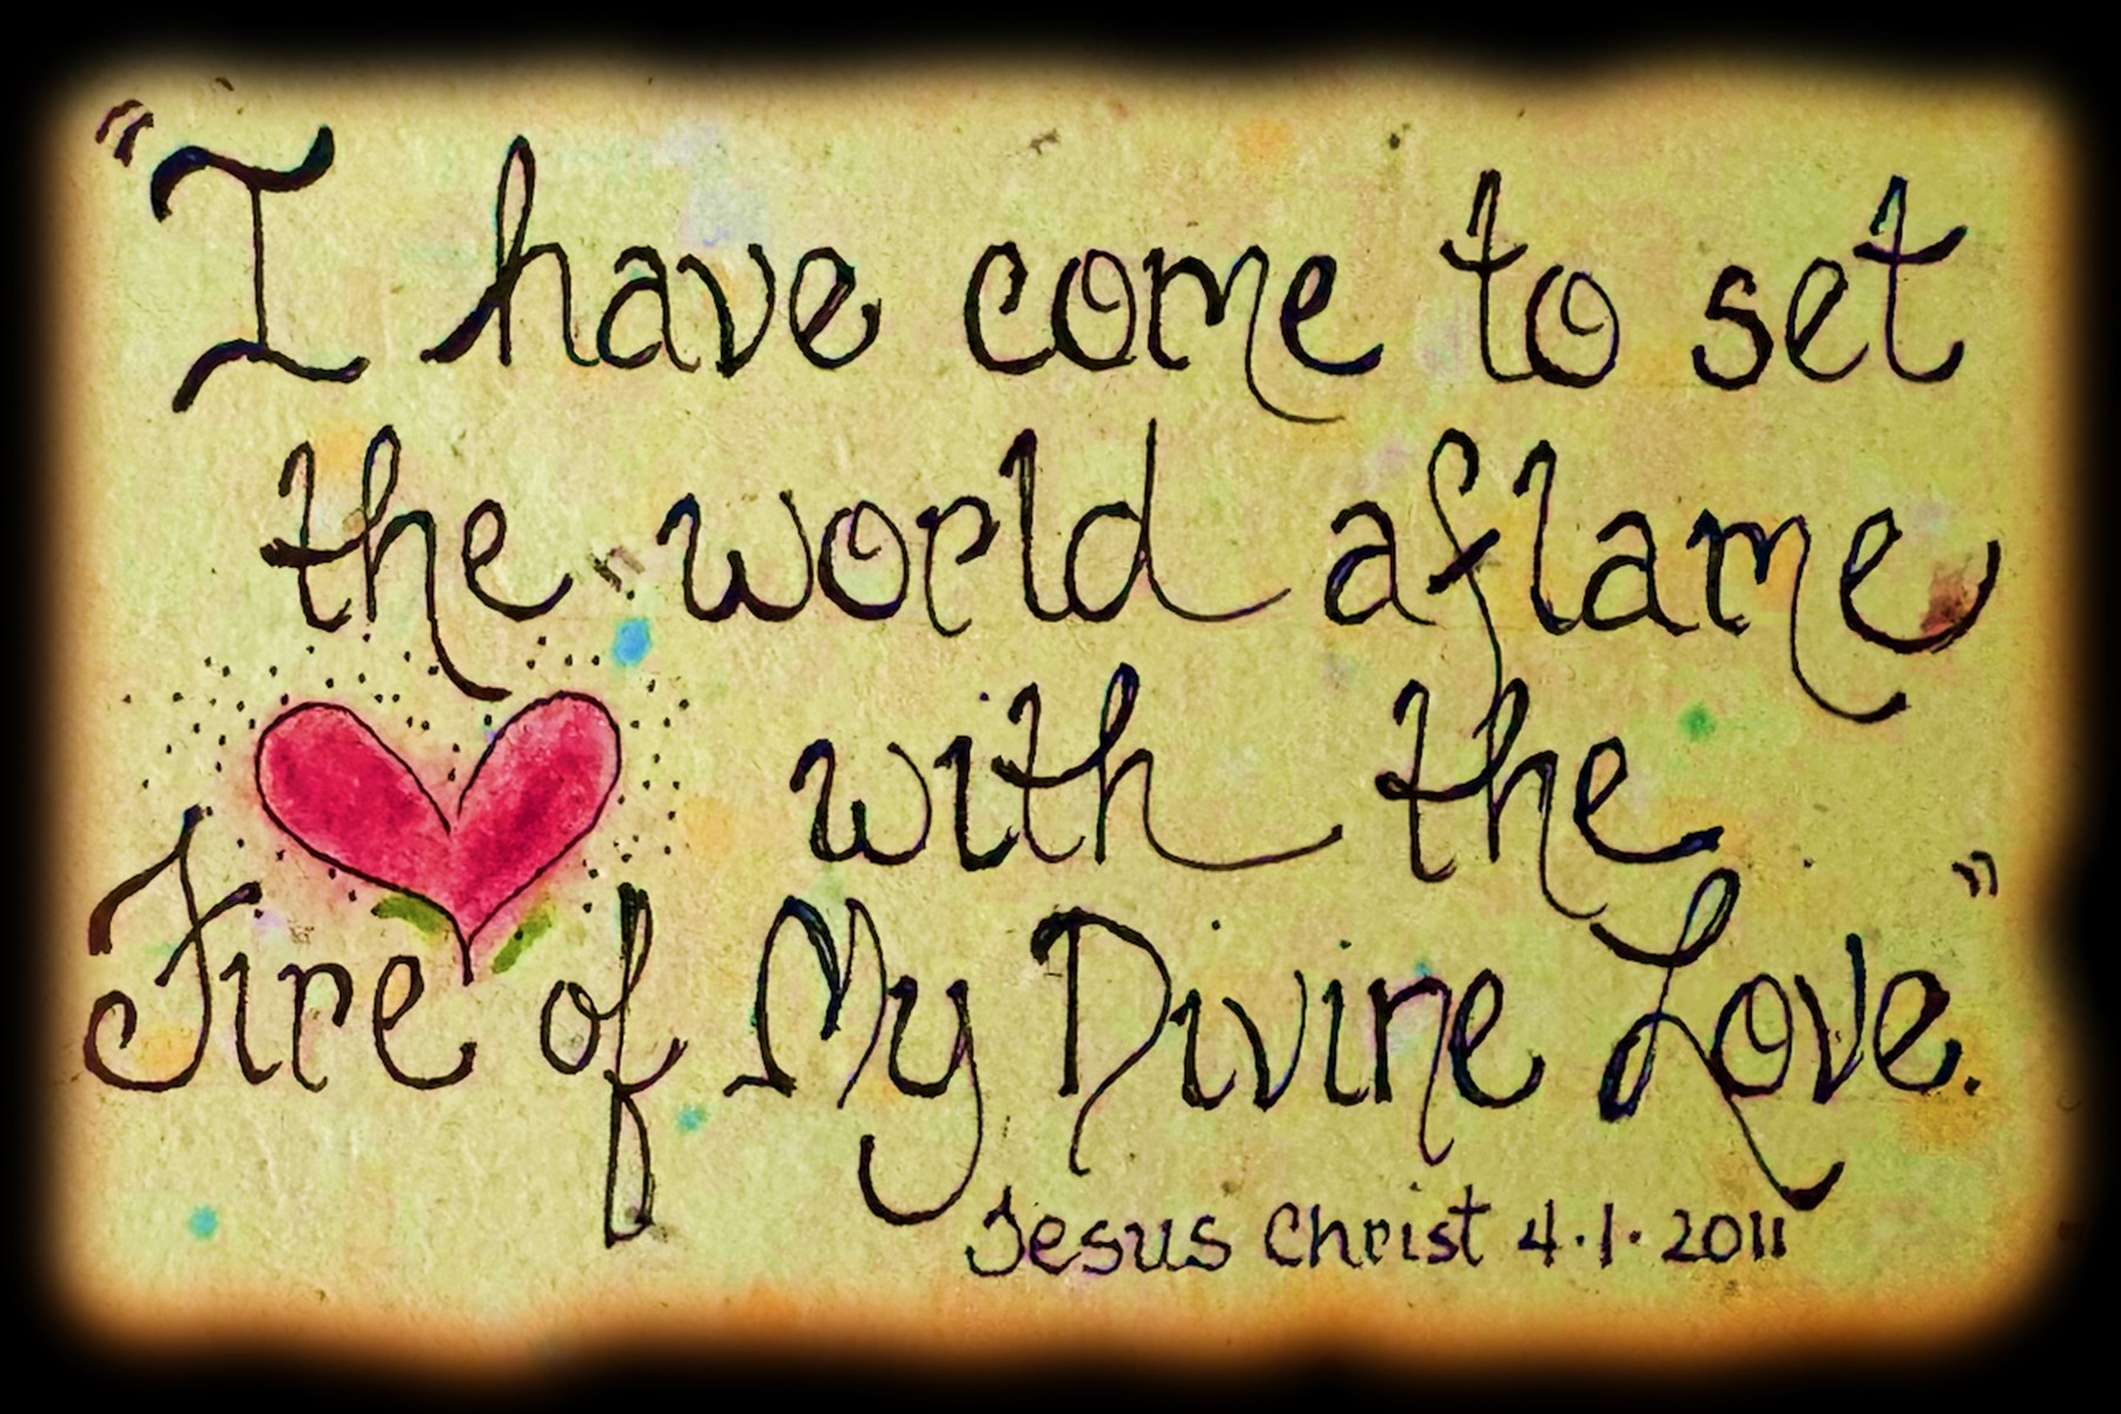 "I have come to set
the world aflame
with the
Fire of My Divine Love."
Jesus Christ 4.1.2011